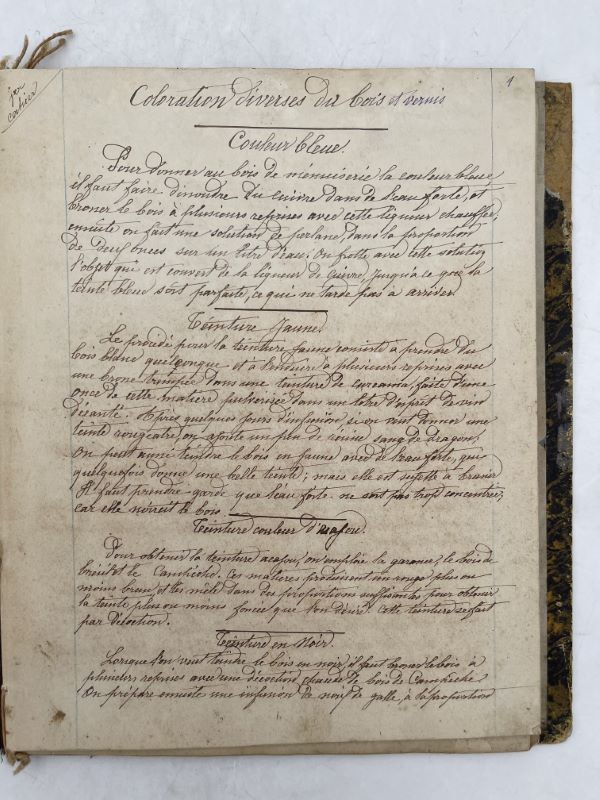 1er
cahier
1
Coloration diverses du bois et vernis
Couleur bleue.
Pour donner au bois de ménuiserie la couleur bleue
il faut faire dissoudre du cuivre dans de l'eau forte, et
broner le bois à plusieurs reprises avec cette liqueur chauffée,
ensuite on fait une solution de perlane, dans la proportion
de deux onces sur un litre d'eau. On frotte avec cette solution
l'objet qui est couvert de la liqueur de cuivre, jusqu'à ce que la
teinte bleue soit parfaite, ce qui ne tarde pas à arriver.
Teinture Jaune
Le procédé pour la teinture jaune consiste à prendre du
bois blanc quelconque et à l'enduire à plusieurs reprises avec
une brone trempée dans une teinture de curcuma, faite d'une
once de cette matière pulvérisée dans un litre d'esprit de vin
Après quelques jours d'infusion, si on veut donner une
teinte rougeatre, on ajoute un peu de résine sang de dragon.
On peut aussi teindre le bois en jaune avec de l'eau forte, qui
quelquefois donne une belle teinte; mais elle est sujette à brunir
Il faut prendre garde que l'eau forte ne soit pas trop concentrée,
car elle noircit le bois
Teinture couleur d'acajou.
Pour obtenir la teinture acajou, on emploie la garance, le bois de
brésil et le Ces matières produisent un rouge plus ou
moins brun et les mêle dans des proportions suffisantes pour obtenir
la teinte plus ou moins foncée que l'on désire. Cette teinture se fait
par décoction.
Teinture en Noir.
Lorsque l'on veut teindre le bois en noir, il faut broner le bois à
plusieurs reprises avec une décoction chaude de bois de
On prépare ensuite une infusion de noix de galle, à la proportion